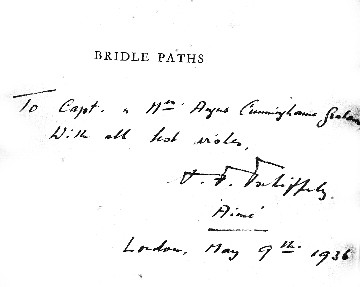 BRIDLE PATHS
To Capt. & Mrs Angus Cunninghame Graham
With all best wishes,
A. F. Tschiffely.
'Aimé'
London, May 9th 1936